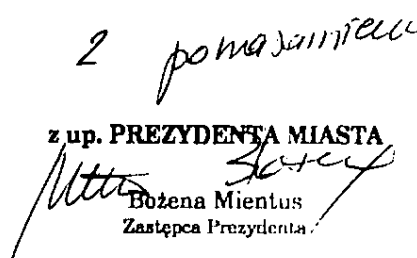 z poważaniem
z up. PREZYDENTA MIASTA
Bożena Mientus
Zastępca Prezydenta